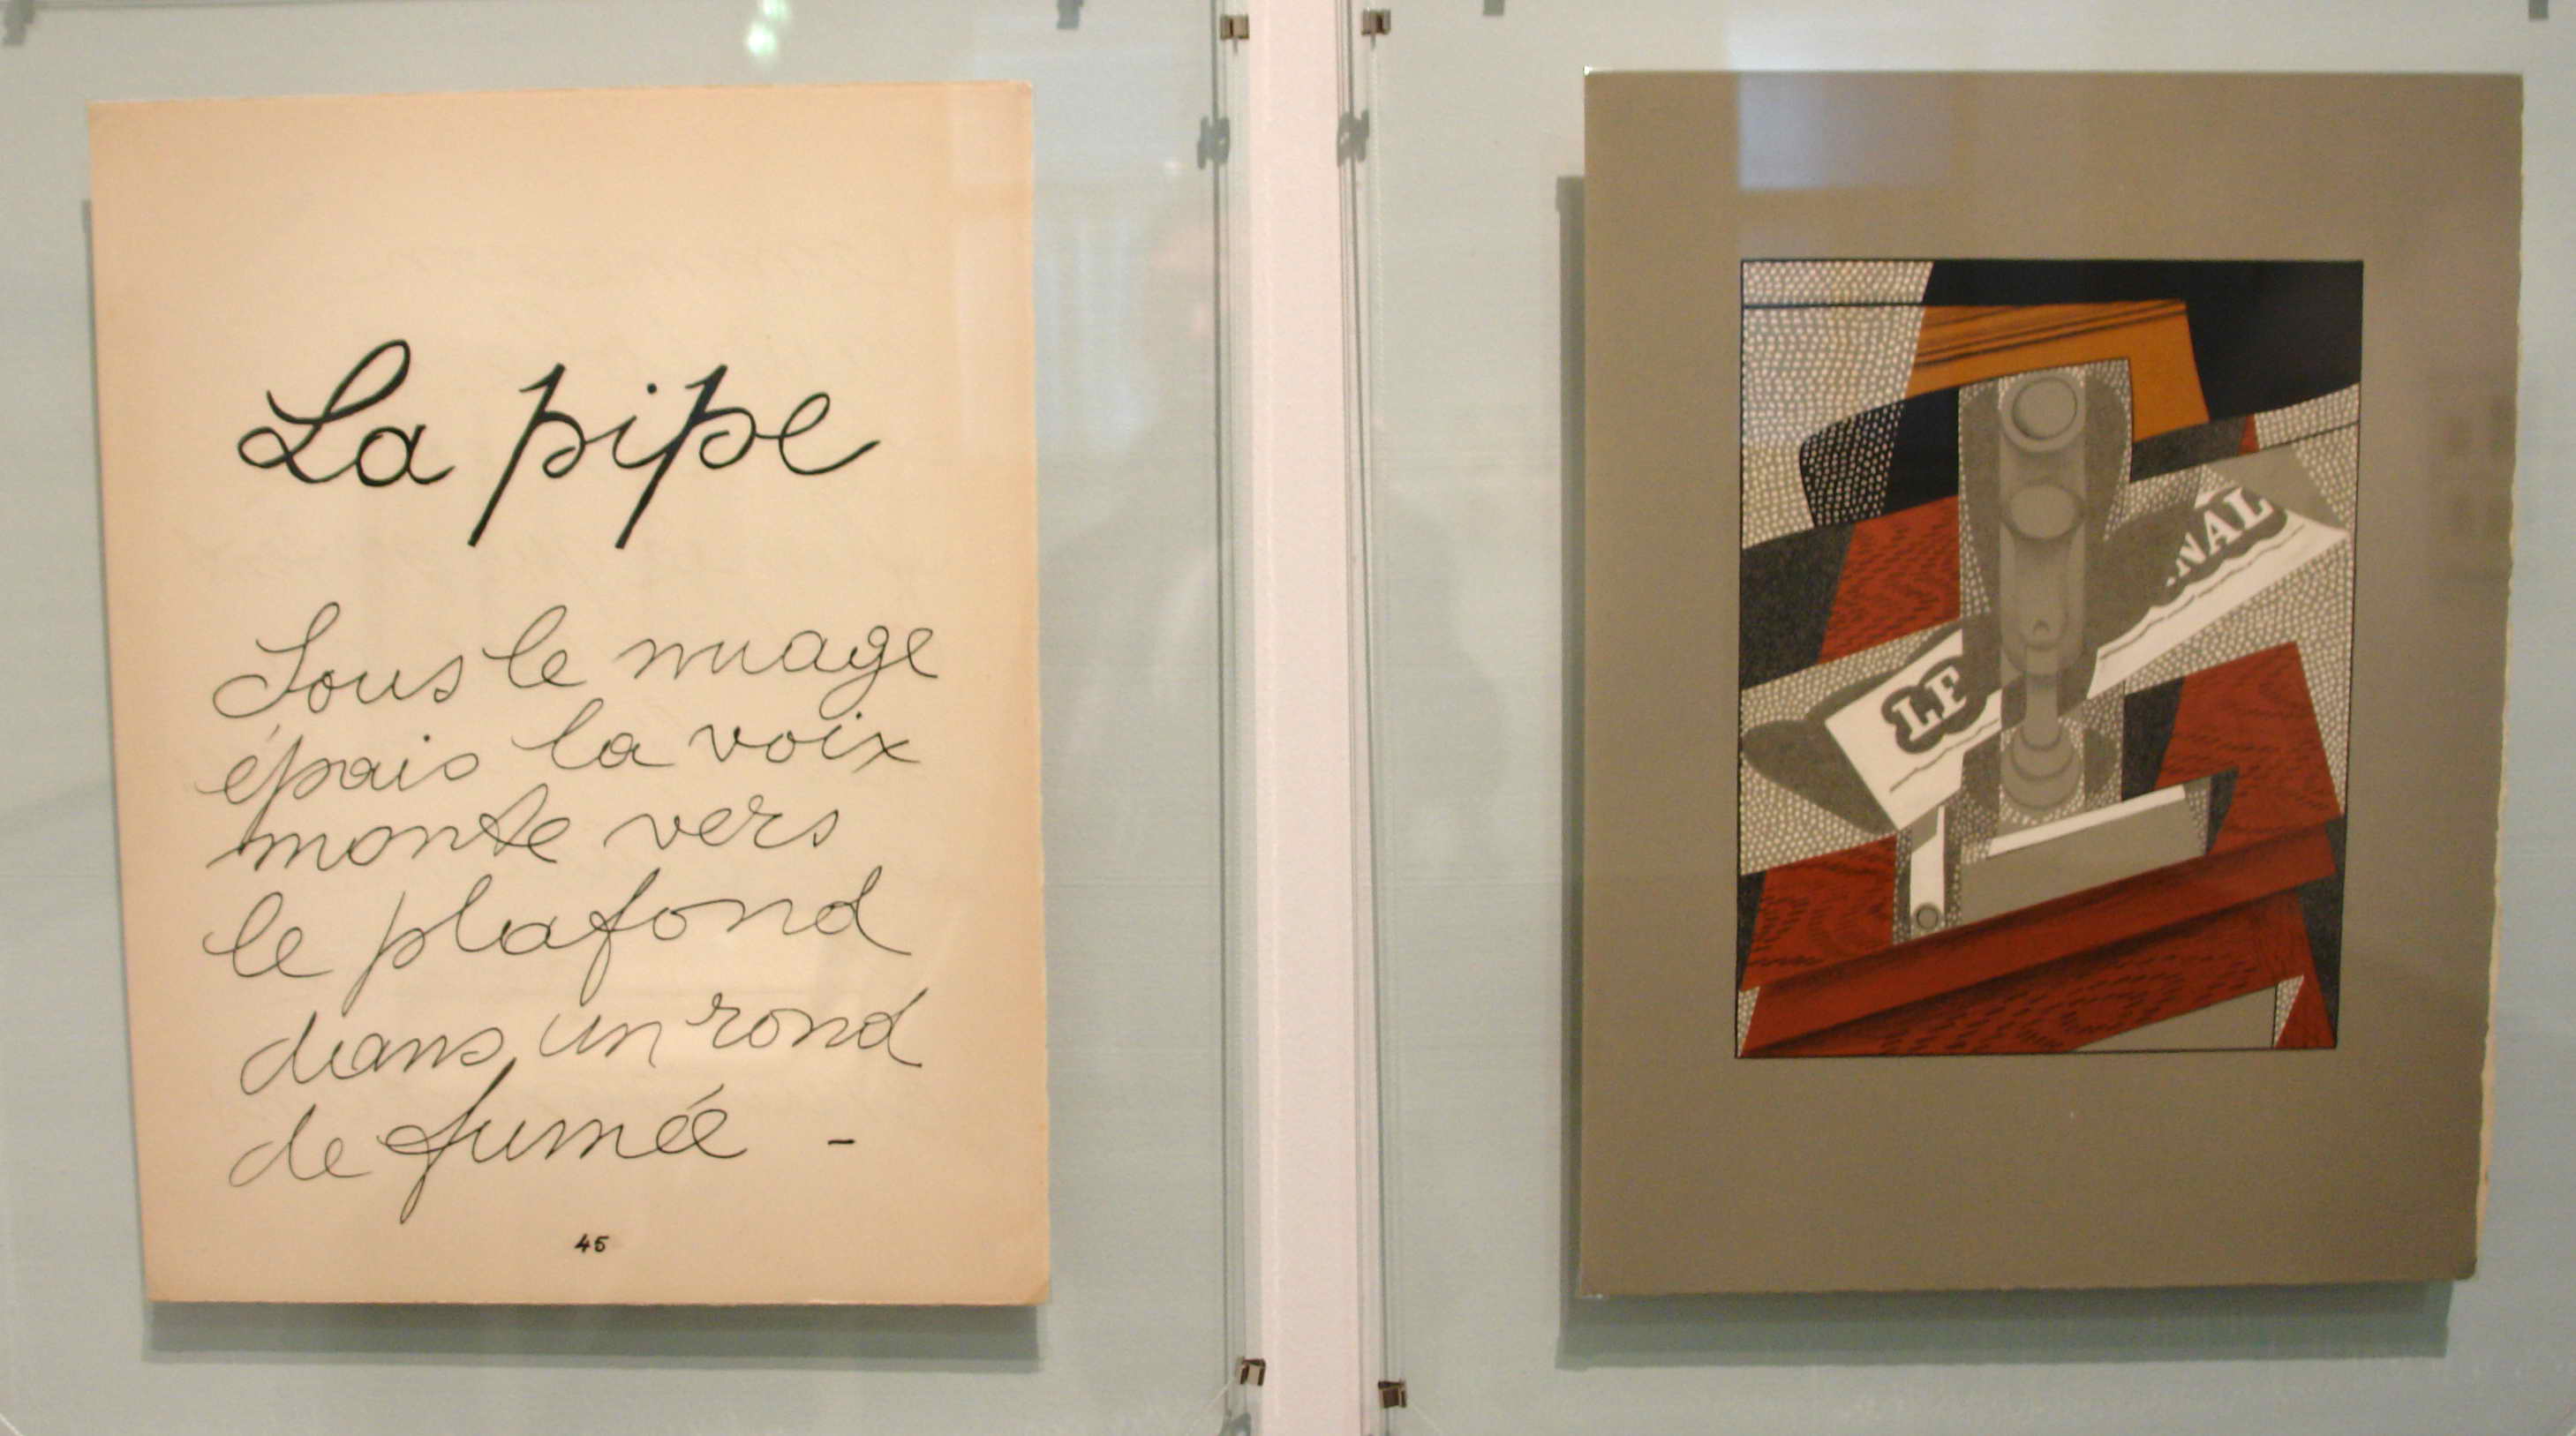 La pipe
Sous le nuage
épais la voix
monte vers
le plafond
dans un rond
de fumée -
45
LE NAL